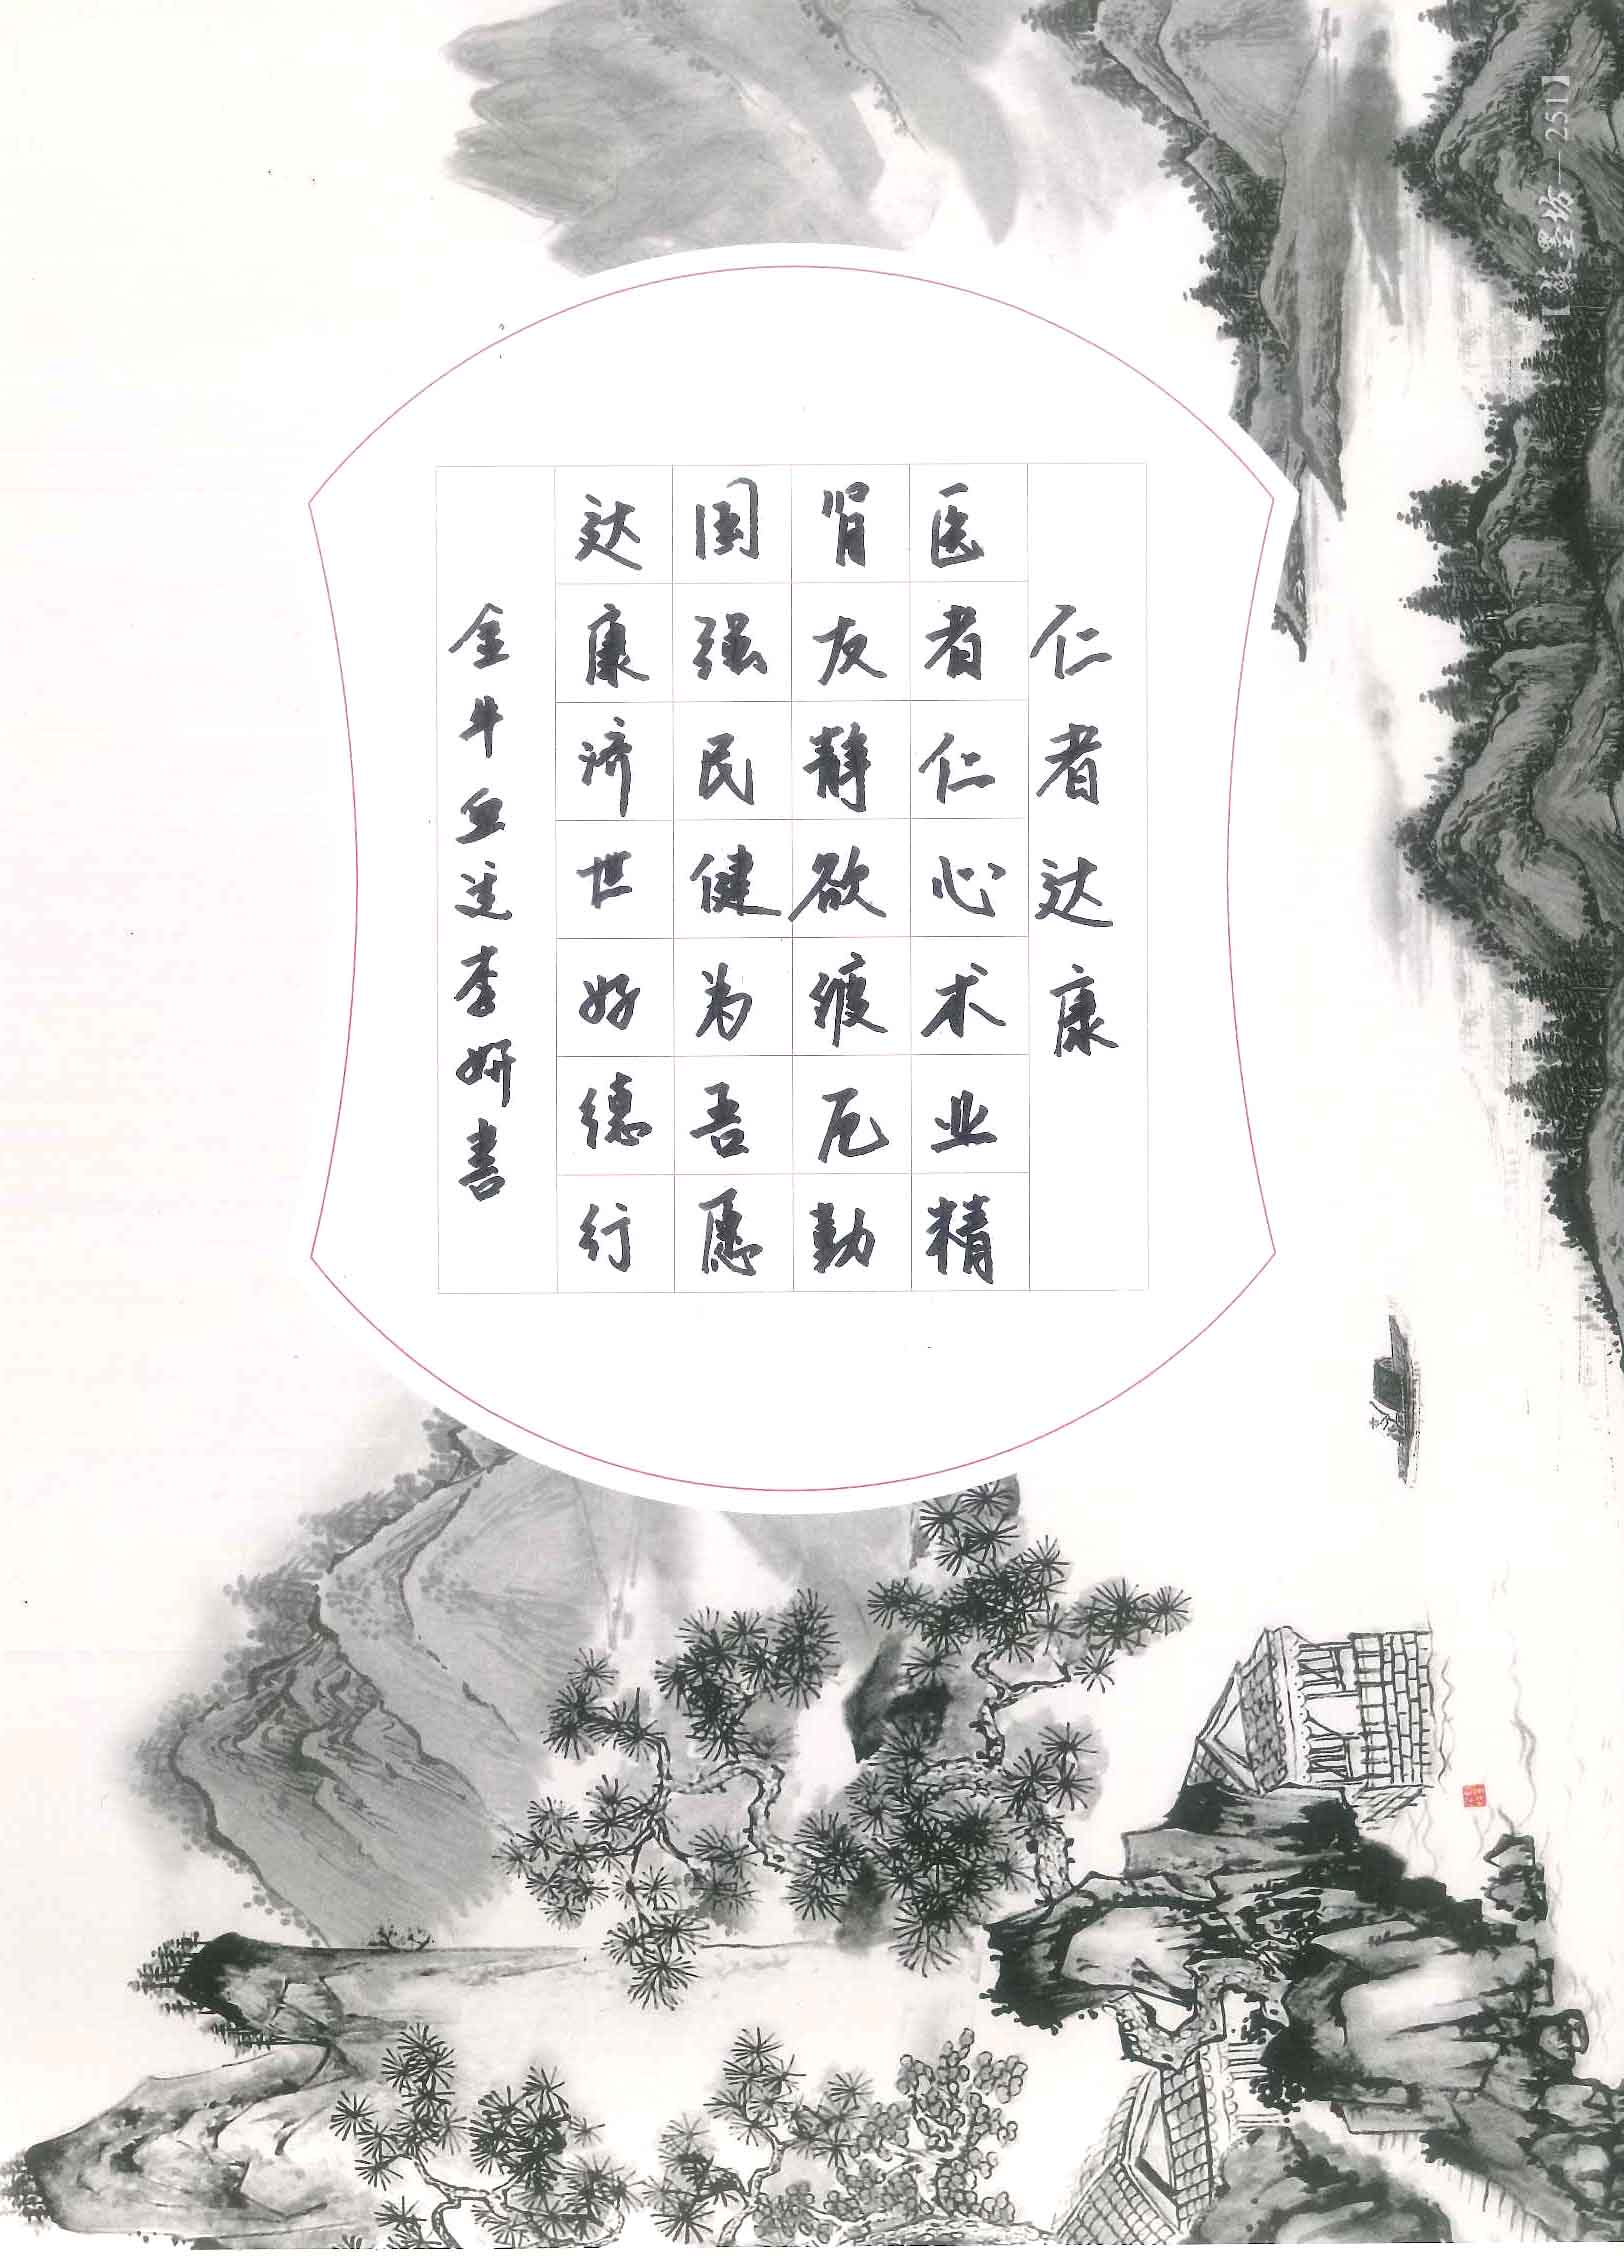 仁者达康
医者仁心术业精
肾友静欲缓厄勤
国强民健为吾愿
达康济世好德行
金牛血透李妍书
墨坊—251】